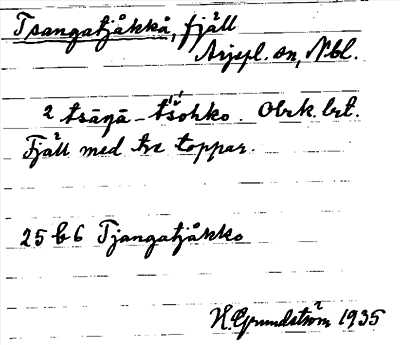 Tsangatjåkkå, fjäll
Arjepl. sn, Nbl.
2 tsāŋā - tšohko. Obrk. lrt.
Fjäll med tre toppar.
25 b 6 Tjangatjåkko
H. Grundström 1935